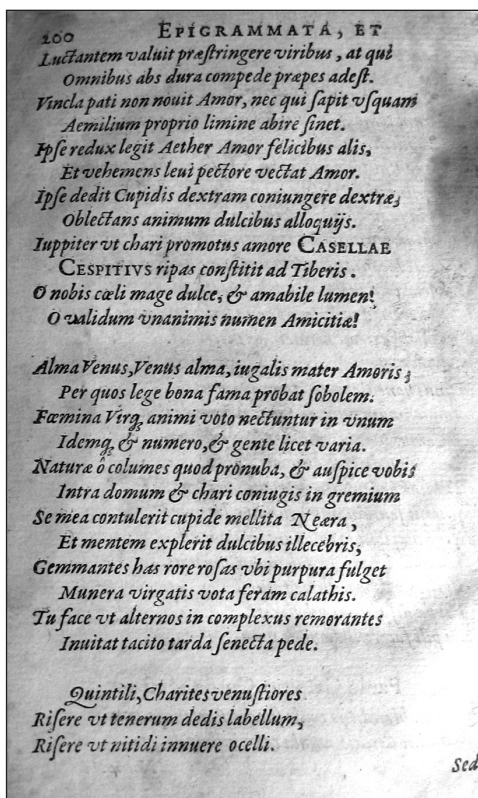 200 EPIGRAMMATA, ET
Luctantem valuit præstringere viribus, at qui
Omnibus abs dura compede præpes adest.
Vincla pati non nouit Amor, nec qui sapit vsquam
Aemilium proprio limine abire sinet.
Ipse redux legit Aether Amor felicibus alis,
Et vehemens leui pectore vectat Amor.
Ipse dedit Cupidis dextram coniungere dextræ,
Oblectans animum dulcibus alloquijs.
Iuppiter vt chari promotus amore CASELLAE
CESPITIVS ripas constitit ad Tiberis.
O nobis cœli mage dulce, & amabile lumen!
O validum vnanimis numen Amicitiæ!
Alma Venus, Venus alma, iugalis mater Amoris;
Per quos lege bona fama probat sobolem.
Fœmina Virq́; animi voto nectuntur in vnum
Idemq́; & numero, & gente licet varia.
Naturæ ô columes quod pronuba, & auspice vobis
Intra domum & chari coniugis in gremium
Se mea contulerit cupide mellita Neæra,
Et mentem explerit dulcibus illecebris,
Gemmantes has rore rosas vbi purpura fulget
Munera virgatis vota feram calathis.
Tu face vt alternos in complexus remorantes
Inuitat tacito tarda senecta pede.
Quintili, Charites venustiores
Risere vt tenerum dedis labellum,
Risere vt nitidi innuere ocelli.
Sed